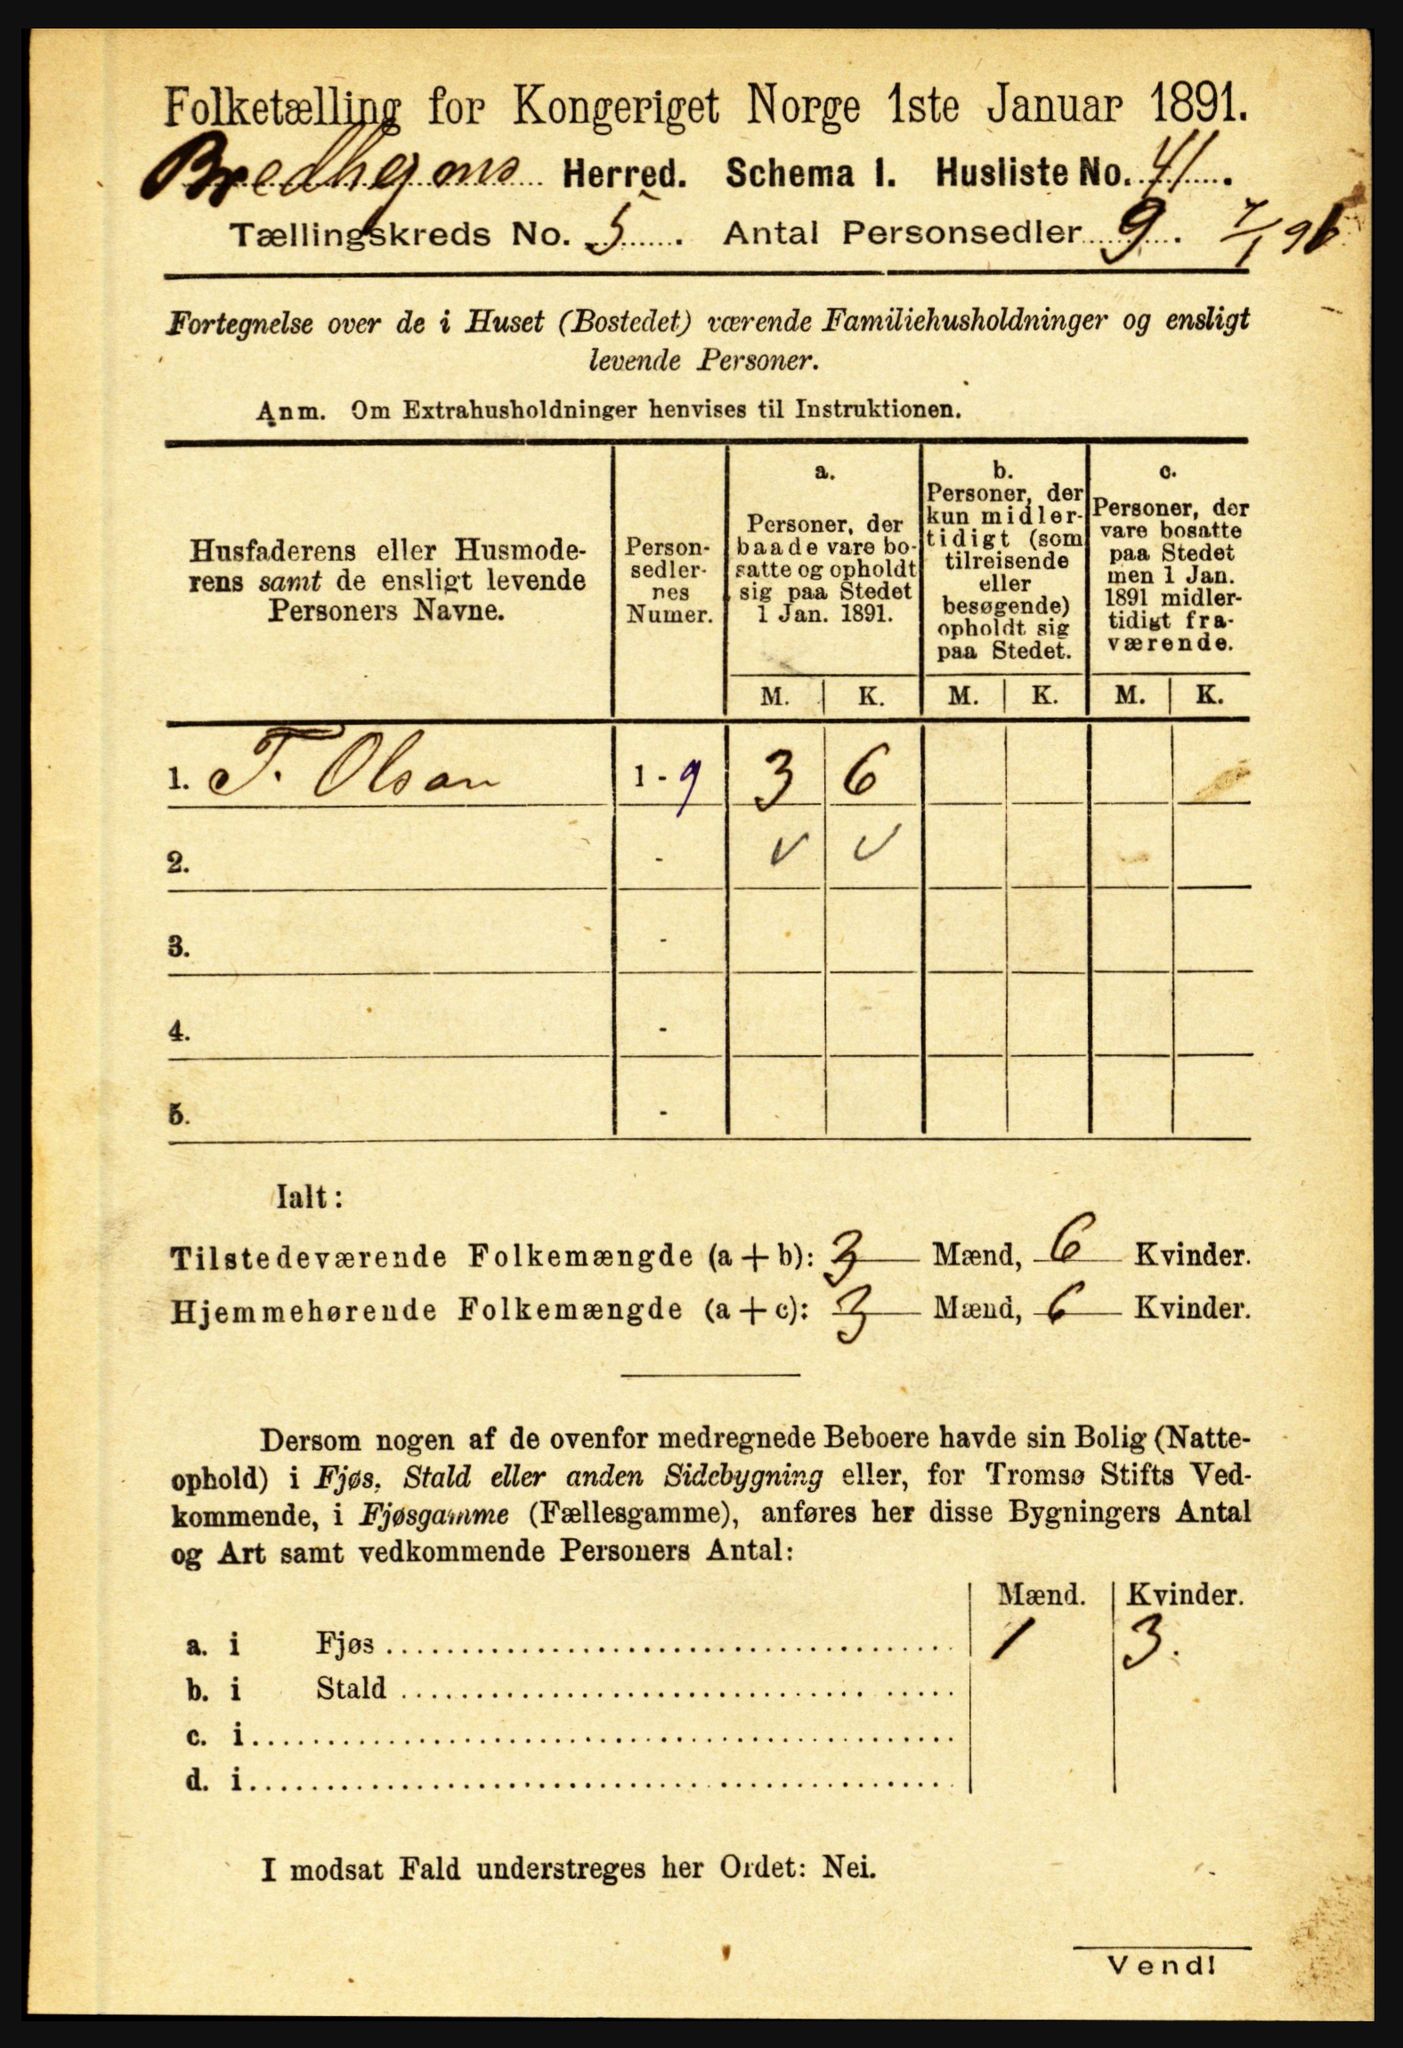 Folketælling for Kongeriget Norge 1ste Januar 1891.
Bredhejms Herred. Schema 1. Husliste No. 41.
Tællingskreds No. 5. Antal Personsedler 9. 7/1 96
Fortegnelse over de i Huset (Bostedet) værende Familiehusholdninger og ensligt
levende Personer.
Anm. Om Extrahusholdninger henvises til Instruktionen.
Husfaderens eller Husmode-
rens samt de ensligt levende
Personers Navne.
Person-
sedler-
nes
Numer.
a.
Personer, der
baade vare bo-
satte og opholdt
sig paa Stedet
1 Jan. 1891.
b.
Personer, der
kun midler-
tidigt (som
tilreisende
eller
besøgende)
opholdt sig
paa Stedet.
c.
Personer, der
vare bosatte
paa Stedet
men 1 Jan.
1891 midler-
tidigt fra-
værende.
M. K. M. K. M. K.
1. T. Olsen 1 - 9 3 6
2. - v v
3. -
4. -
5. -
Ialt:
Tilstedeværende Folkemængde (a + b): 3 Mænd, 6 Kvinder.
Hjemmehørende Folkemængde (a + c): 3 Mænd, 6 Kvinder.
Dersom nogen af de ovenfor medregnede Beboere havde sin Bolig (Natte-
ophold) i Fjøs, Stald eller anden Sidebygning eller, for Tromsø Stifts Ved-
kommende, i Fjøsgamme (Fællesgamme), anføres her disse Bygningers Antal
og Art samt vedkommende Personers Antal:
Mænd. Kvinder.
a. i Fjøs 1 3.
b. i Stald
c. i
d. i
I modsat Fald understreges her Ordet: Nei.
Vend!